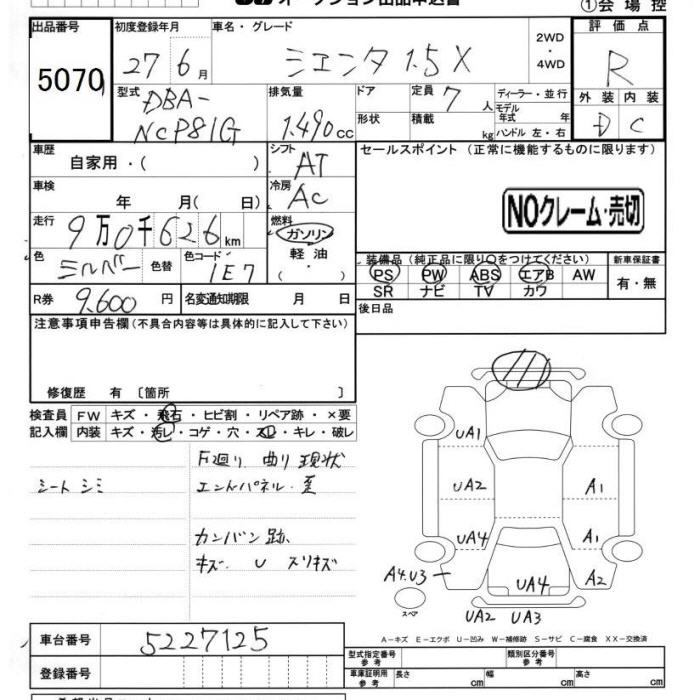 オークション出品申込書
①会場控
出品番号 初度登録年月 車名・グレード 評価点
5070 27 6月 シエンタ 1.5 X 2WD・4WD R
型式 排気量 ドア 定員 7 人 ディーラー・並行 外装 内装
DBA-NCP81G 1.490cc 形状 積載 kg モデル年式 年 ハンドル 左・右 D C
車歴 シフト セールスポイント (正常に機能するものに限ります)
自家用・( ) AT
車検 冷房
年 月( 日) AC NOクレーム・売切
走行 燃料
9万0千626km ガソリン
色 色替 色コード 軽油 装備品 (純正品に限り○をつけてください) 新車保証書
シルバー 1E7 ・( ) PS PW ABS エアB AW 有・無
SR ナビ TV カワ
R券 9.600円 名変通知期限 月 日
後日品
注意事項申告欄(不具合内容等は具体的に記入して下さい)
修復歴 有 〔箇所 〕
検査員 FW キズ・飛石・ヒビ割・リペア跡・×要
記入欄 内装 キズ・汚レ・コゲ・穴・スレ・キレ・破レ
下廻り 曲り 現状
シート シミ エンドパネル・歪
カンバン 跡
キズ. U スリキズ
UA1
UA2 A1
UA4 A1
A4.U3 A2
UA4
スペア
UA2 UA3
A－キズ E－エクボ U－凹み W－補修跡 S－サビ C－腐食 XX－交換済
車台番号 5227125
型式指定番号 参考 類別区分番号 参考
登録番号 車庫証明用 参考 長さ cm 幅 cm 高さ cm